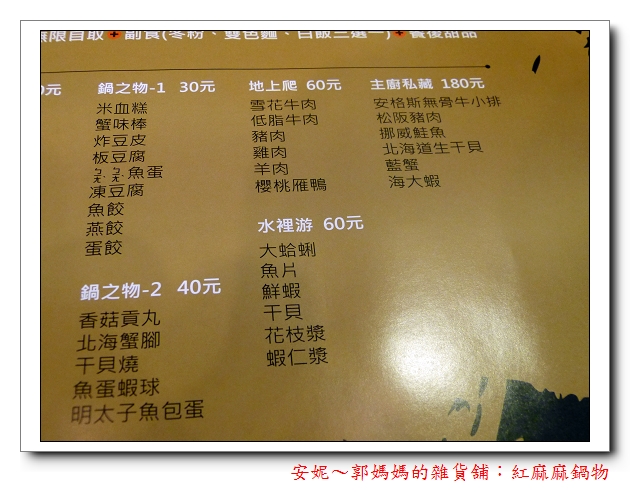 無限自取+副食(冬粉、雙色麵、白飯三選一)+餐後甜品
0元
鍋之物-1 30元
米血糕
蟹味棒
炸豆皮
板豆腐
ㄡˊ.ㄡˊ.魚蛋
凍豆腐
魚餃
燕餃
蛋餃
鍋之物-2 40元
香菇貢丸
北海蟹腳
干貝燒
魚蛋蝦球
明太子魚包蛋
地上爬 60元
雪花牛肉
低脂牛肉
豬肉
雞肉
羊肉
櫻桃雁鴨
水裡游 60元
大蛤蜊
魚片
鮮蝦
干貝
花枝漿
蝦仁漿
主廚私藏 180元
安格斯無骨牛小排
松阪豬肉
挪威鮭魚
北海道生干貝
藍蟹
海大蝦
安妮～郭媽媽的雜貨舖：紅麻麻鍋物